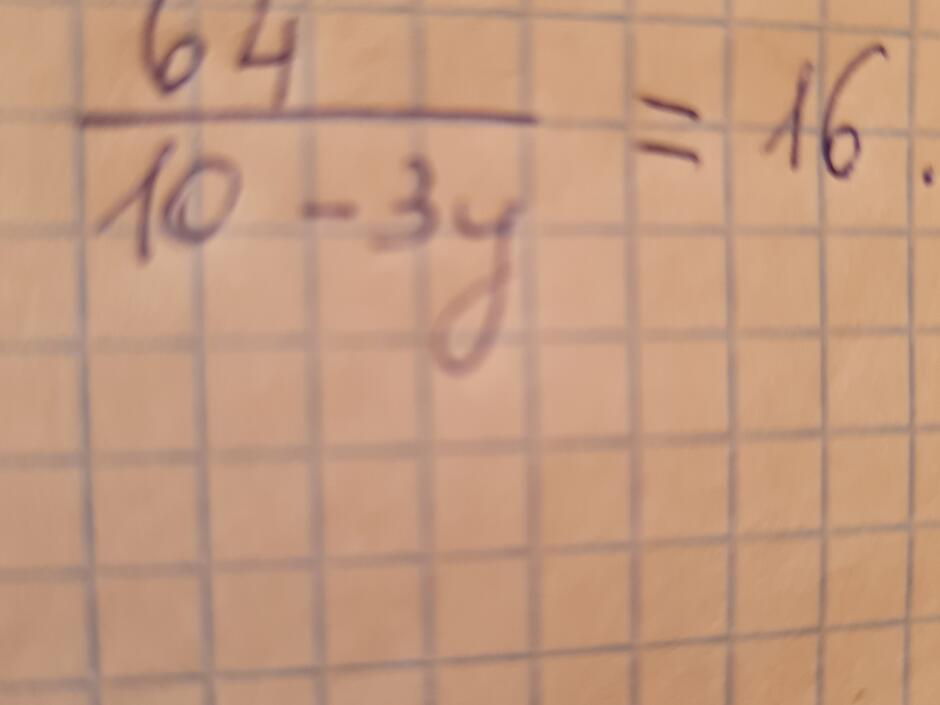 64
10 - 3y = 16.